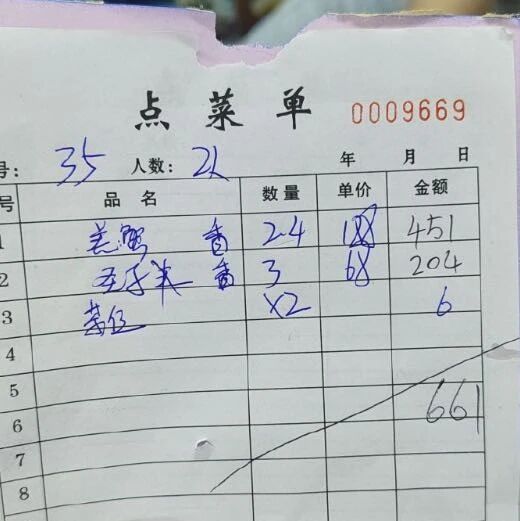 点菜单 0009669
号: 35 人数: 2人 年 月 日
号 品名 数量 单价 金额
1 羔蟹 香 2.4 188 451
2 香 3 68 204
3 茶位 X2 6
4
5
6 661
7
8